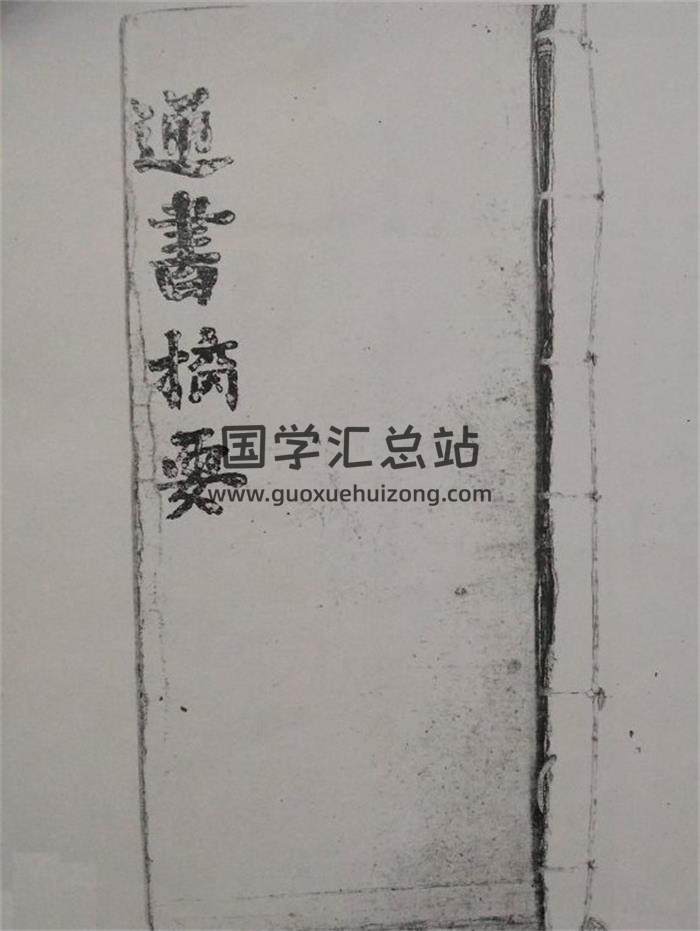 通書摘要
国学汇总站
www.guoxuehuizong.com